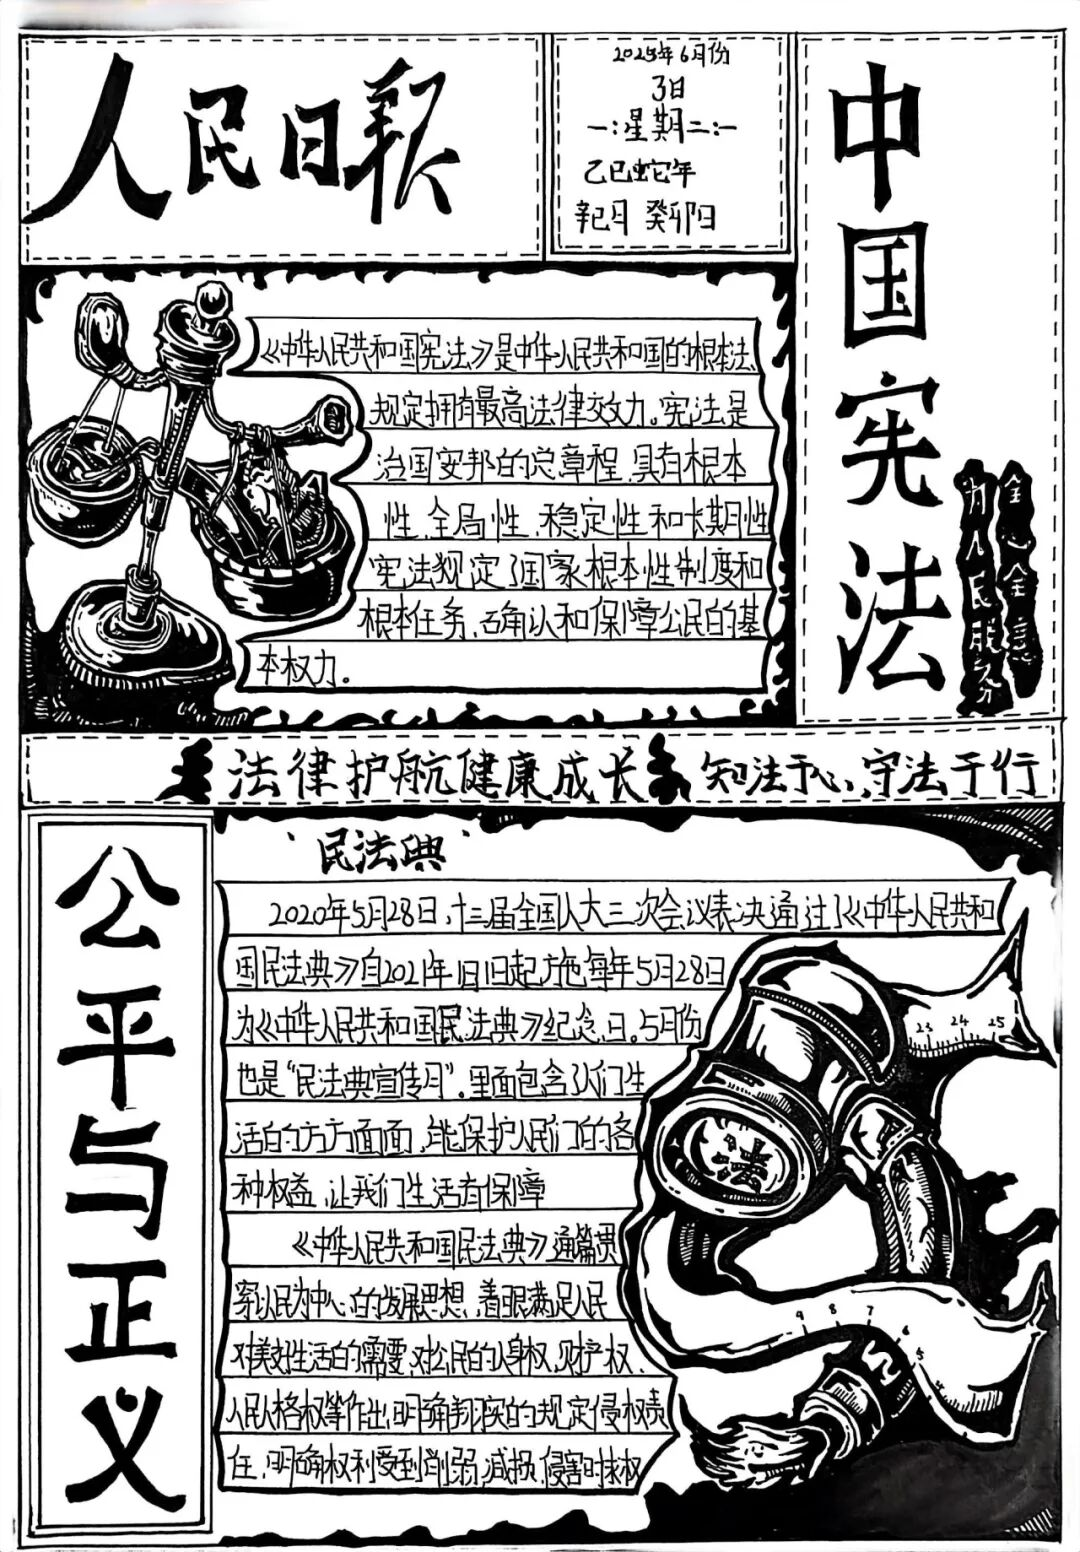 人民日报
2025年6月份
3日
星期二
乙巳蛇年
辛巳月 癸卯日
中国宪法
全心全意
为人民服务
《中华人民共和国宪法》是中华人民共和国的根本法、
规定拥有最高法律效力。宪法是
治国安邦的总章程,具有根本
性,全局性、稳定性和长期性
宪法规定了国家根本性制度和
根本任务,确认和保障公民的基
本权力。
法律护航健康成长 知法于心,守法于行
公平与正义
民法典
2020年5月28日,十三届全国人大三次会议表决通过了《中华人民共和
国民法典》自2021年1月1日起施每年5月28日
为《中华人民共和国民法典》纪念日。5月份
也是“民法典宣传月”。里面包含了人们生
活的方方面面,能保护人民们的各
种权益,让我们生活有保障
《中华人民共和国民法典》通篇贯
穿以人民为中心的发展思想,着眼满足人民
对美好生活的需要,对公民的人身权、财产权、
人民人格权等作出明确翔实的规定侵权责
任,明确权利受到削弱,减损,侵害时求权
23 24 25
法
9 8 7 6 5